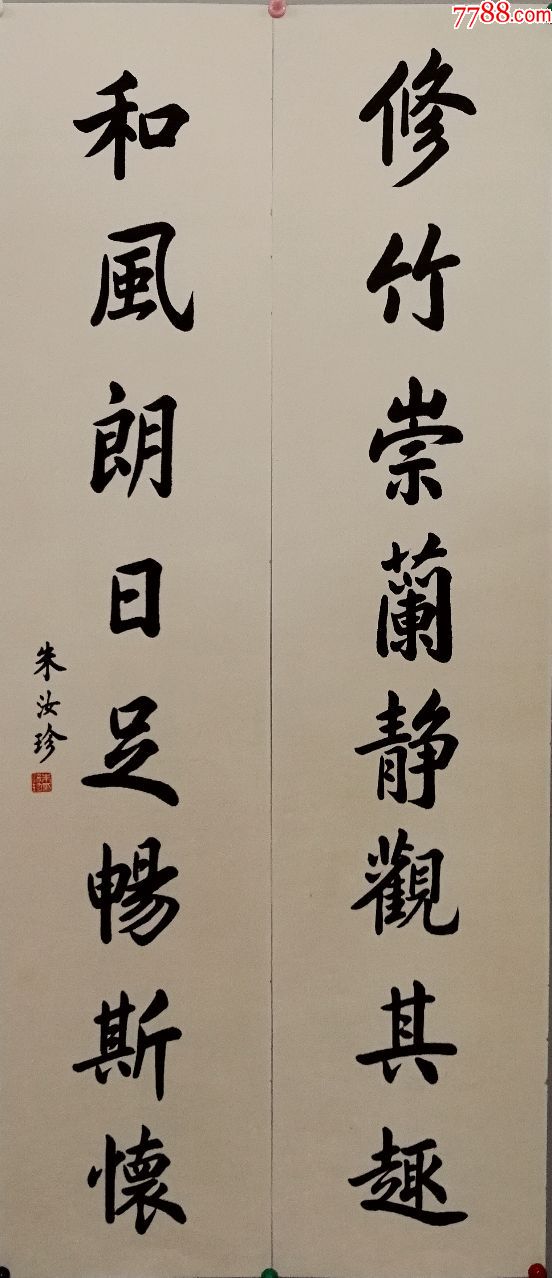 7788.com
修竹崇蘭静觀其趣
和風朗日足暢斯懷
朱汝珍